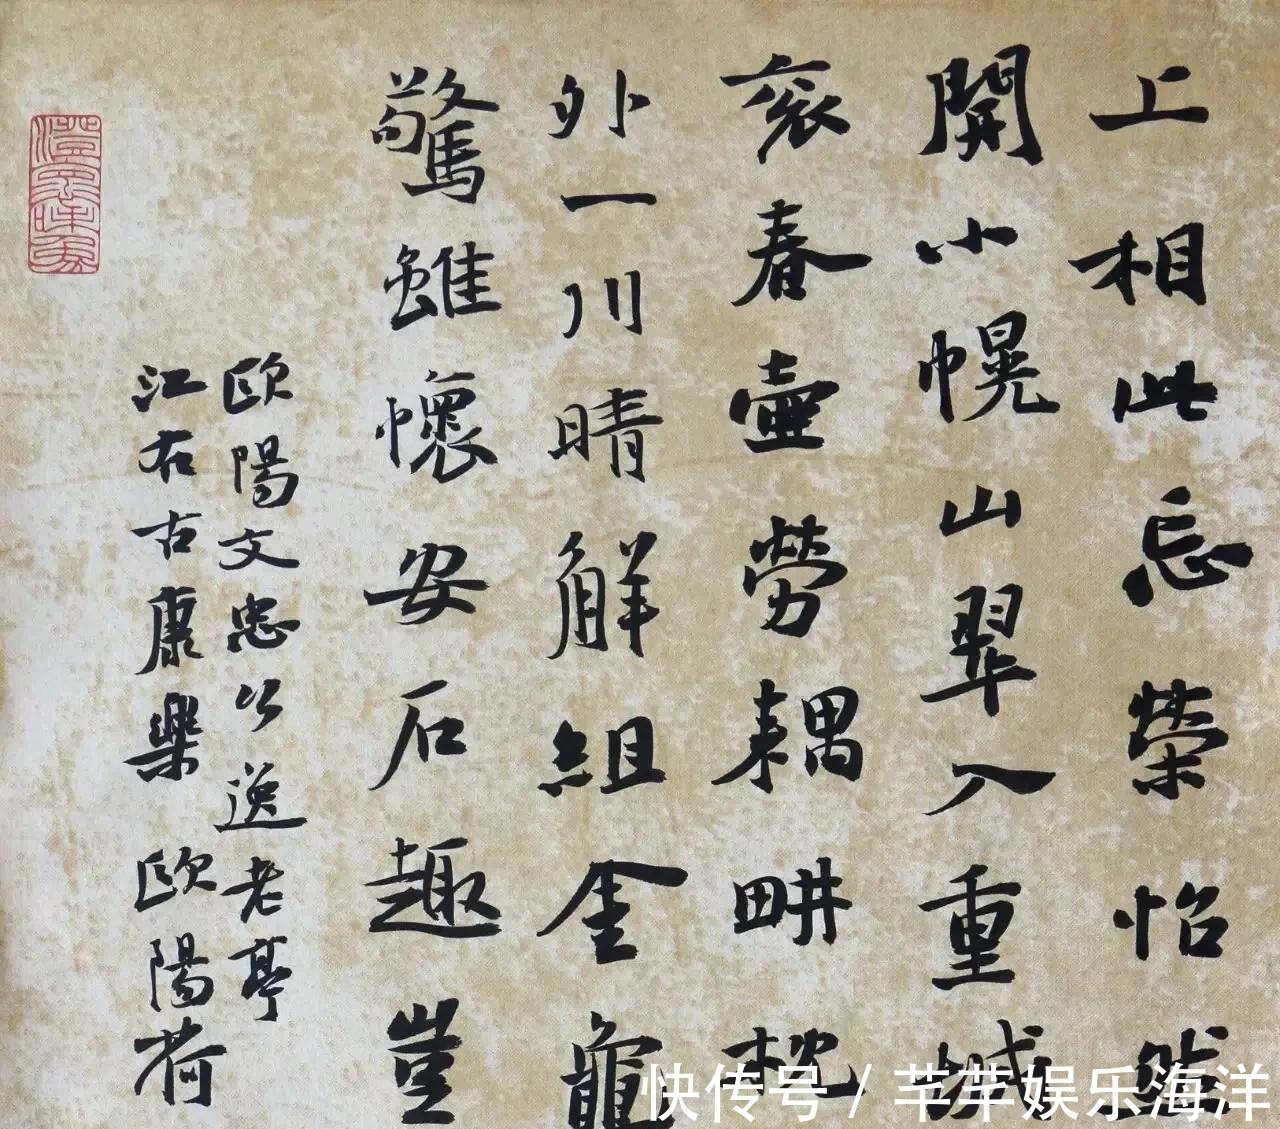 上相此忘榮怡然
開小幌山翠入重城
衮春壺勞耦畊枕
外一川晴解組金龜
驚雖懷安石趣豈
歐陽文忠公逸老亭
江右古康樂 歐陽荷
快传号 / 芊芊娱乐海洋